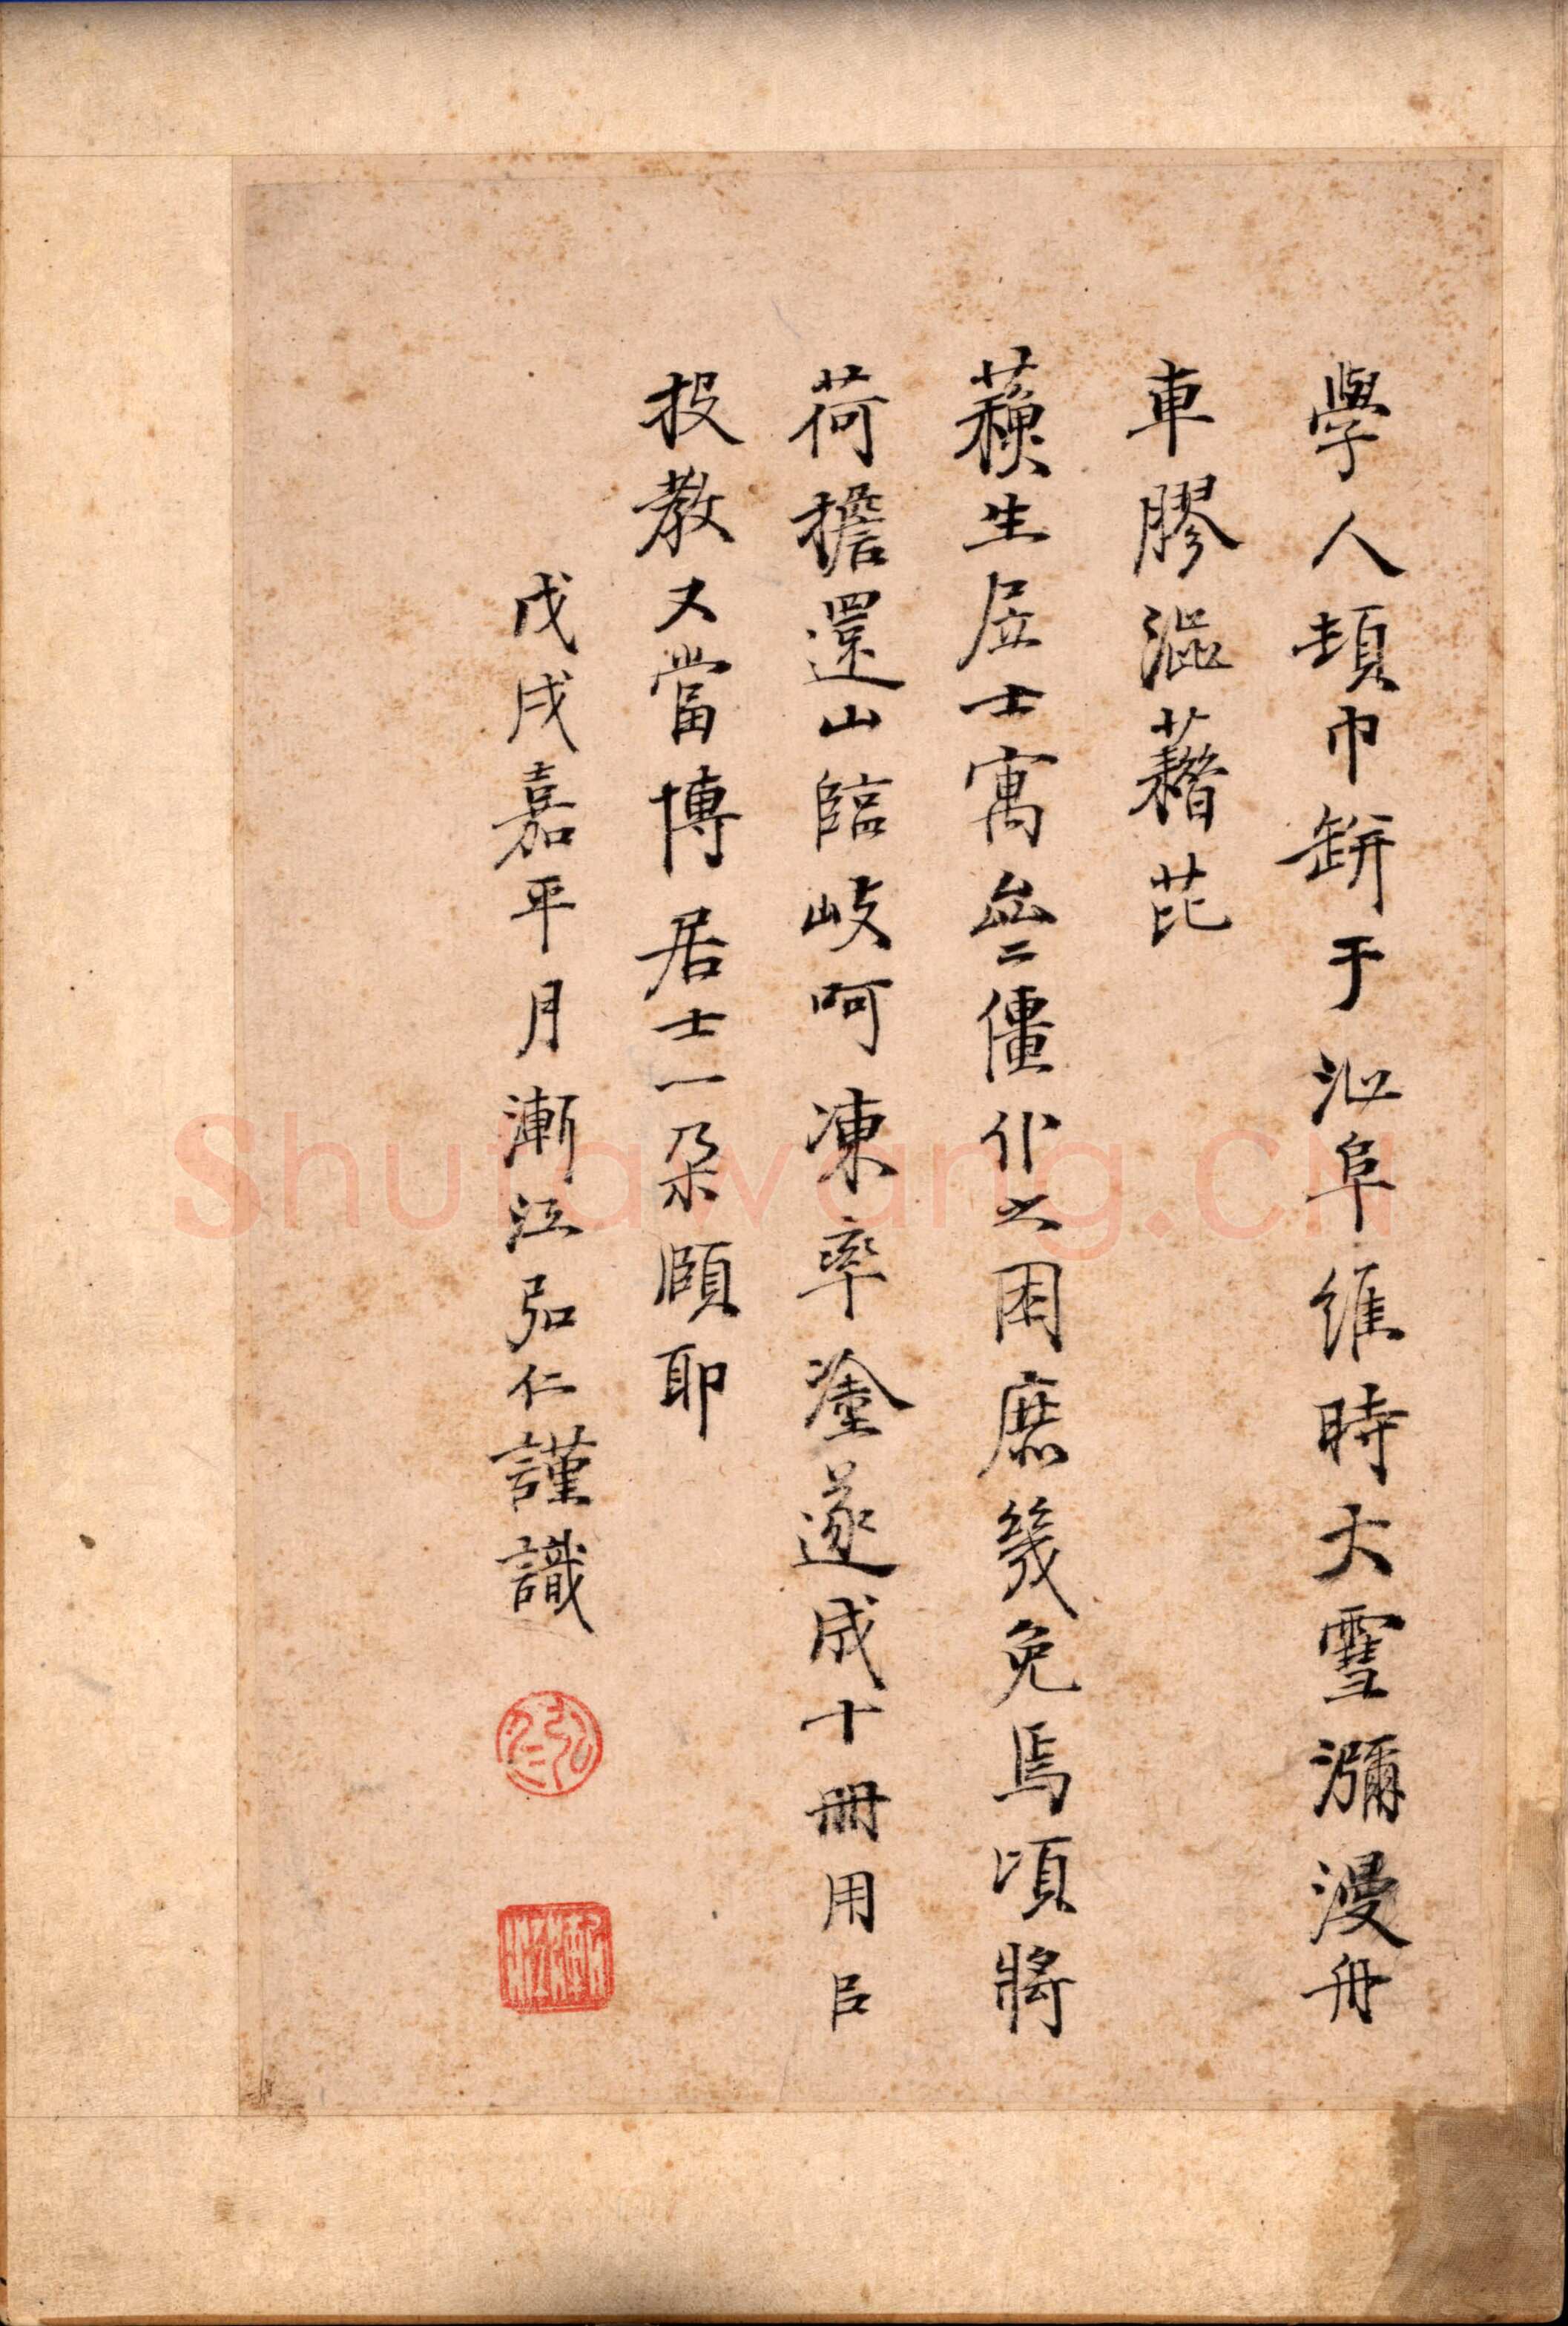 學人頓巾缾于沁阜維時大雪瀰漫舟
車膠澁藉芘
蘓生居士寓亝僵仆之困庶幾免焉頃將
荷擔還山臨岐呵凍率塗遂成十冊用㠯
投教又當博居士一朶頤耶
戊戌嘉平月漸江弘仁謹識
弘仁
Shufawang.CN